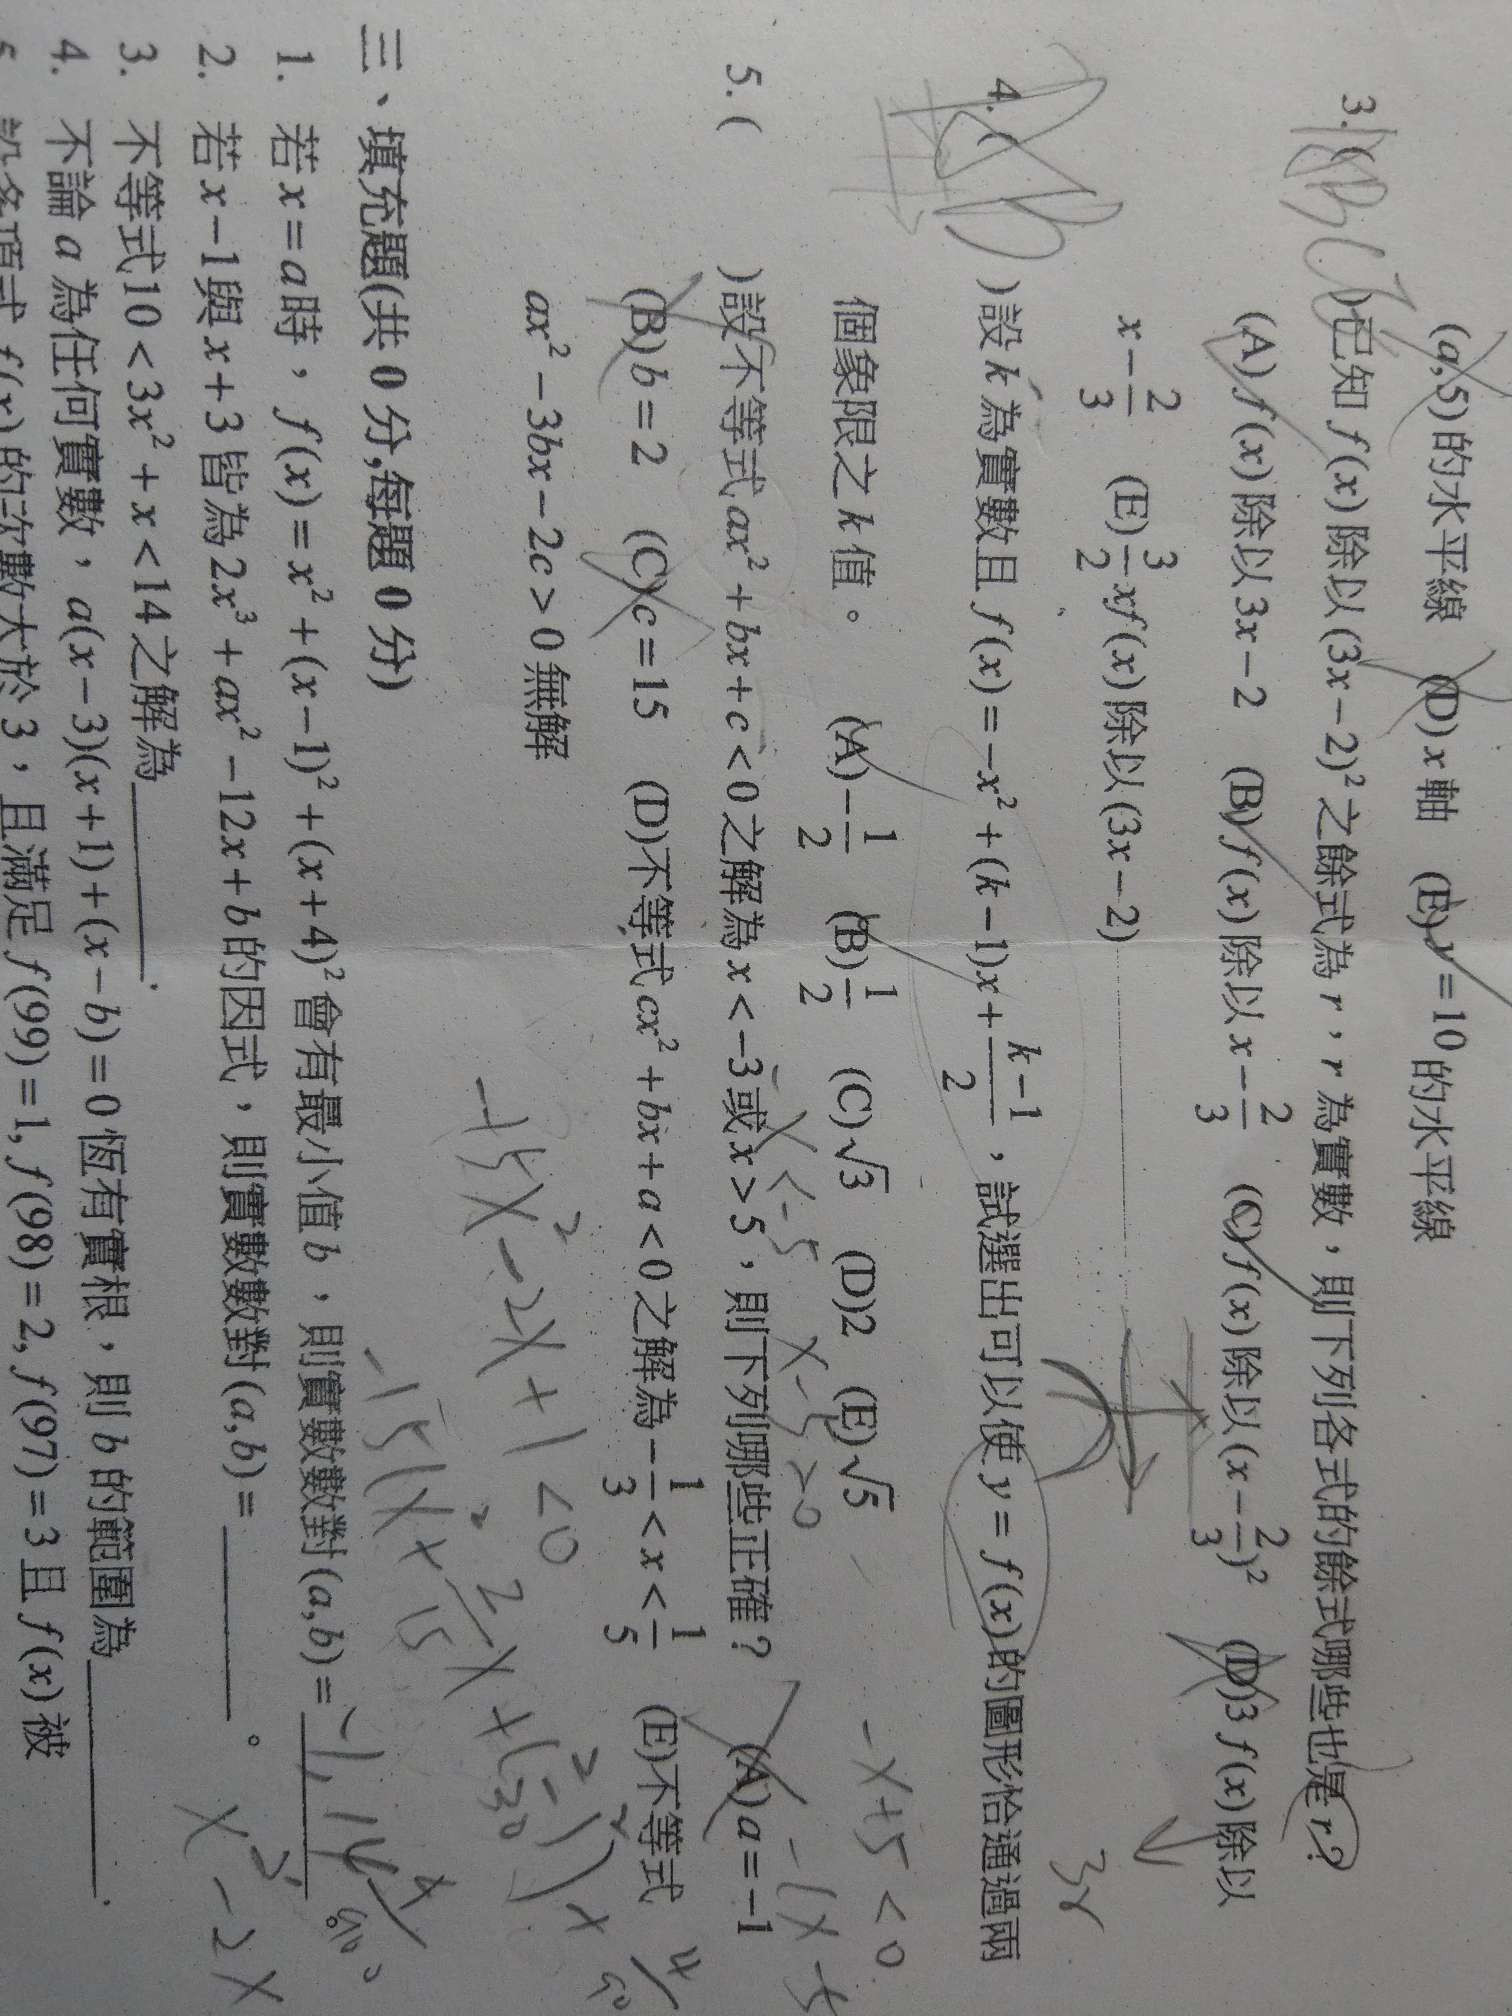 (a,5)的水平線 (D)x軸 (E)y=10的水平線
3.( )已知f(x)除以(3x-2)²之餘式為r,r為實數,則下列各式的餘式哪些也是r?
(A)f(x)除以3x-2 (B)f(x)除以x-2/3 (C)f(x)除以(x-2/3)² (D)3f(x)除以
x-2/3 (E)3/2xf(x)除以(3x-2)
3x
4.( )設k為實數且f(x)=-x²+(k-1)x+(k-1)/2,試選出可以使y=f(x)的圖形恰通過兩
個象限之k值。 (A)-1/2 (B)1/2 (C)√3 (D)2 (E)√5
-x+5<0
x<-5 x-5>0
5.( )設不等式ax²+bx+c<0之解為x<-3或x>5,則下列哪些正確? (A)a=-1
(B)b=2 (C)c=15 (D)不等式cx²+bx+a<0之解為-1/3<x<1/5 (E)不等式
ax²-3bx-2c>0無解
-15x²-2x+1<0
三、填充題(共0分,每題0分)
1. 若x=a時,f(x)=x²+(x-1)²+(x+4)²會有最小值b,則實數數對(a,b)=-1, 14
2. 若x-1與x+3皆為2x³+ax²-12x+b的因式,則實數數對(a,b)=________。
x²-2x
3. 不等式10<3x²+x<14之解為________.
4. 不論a為任何實數,a(x-3)(x+1)+(x-b)=0恆有實根,則b的範圍為________.
5. 設多項式f(x)的次數大於3,且滿足f(99)=1,f(98)=2,f(97)=3且f(x)被